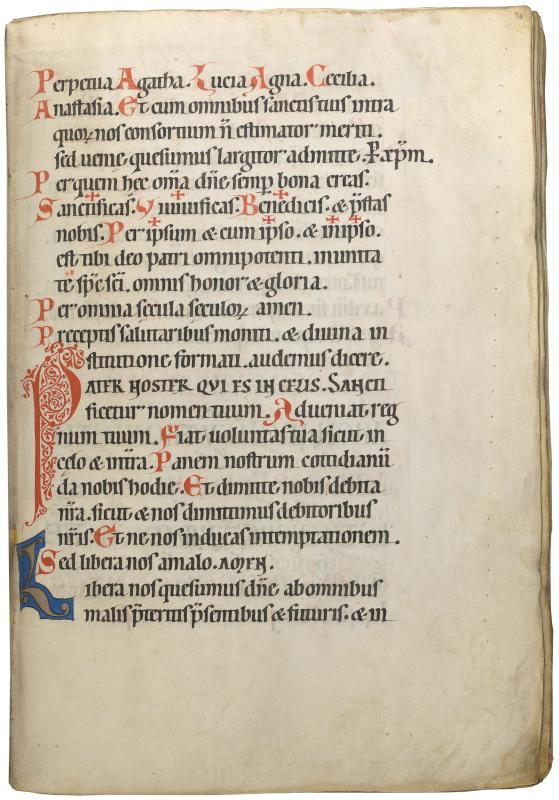 Perpetua Agatha. Lucia Agna. Cecilia.
Anastasia. Et cum omnibus sanctis tuis intra
quoꝝ nos consortium n̄ estimator meriti.
sed uenie quesumus largitor admitte. P. xp̄m.
Per quem hec om̄a dn̄e semp̄ bona creas.
Sanctificas. Viuificas. Benedicis. & p̄stas
nobis. Per ipsum & cum ipso. & in ipso.
est tibi deo patri omnipotenti. in unita
te sp̄c sc̄i. omnis honor & gloria.
Per omnia secula seculoꝝ amen.
Preceptis salutaribus moniti. & diuina in
stitutione formati. audemus dicere.
PATER NOSTER QVI ES IN CELIS. SANCTI
ficetur nomen tuum. Adueniat reg
num tuum. Fiat uoluntas tua sicut in
celo & in t̄ra. Panem nostrum cotidianū
da nobis hodie. Et dimitte nobis debita
nr̄a. sicut & nos dimittimus debitoribus
nr̄is. Et ne nos inducas in temptationem.
Sed libera nos a malo. AMEN.
Libera nos quesumus dn̄e ab omnibus
malis p̄teritis p̄sentibus & futuris. & in